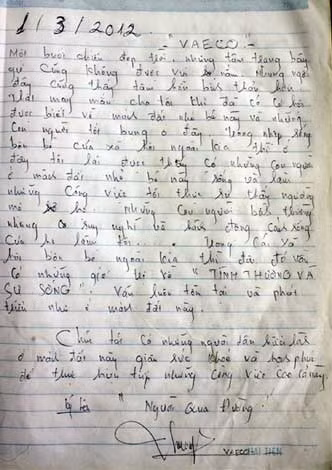 1/3/2012
"VAECO"
Một buổi chiều đẹp trời, những tâm trạng bây
giờ cũng không được vui, nhưng ngồi
đây cũng thấy tâm hồn bớt
Thật may mắn cho tôi khi đã có cơ hội
được biết về mảnh đất nhỏ bé này và những
con người tôi ở đây. Trong nhịp sống
bôn bề của xã hội ngoài kia thì ở
đây tôi lại được thấy có những con người
ở mảnh đất nhỏ bé này sống và làm
những công việc tôi thực sự thấy ngưỡng
mộ những con người bình thường
nhưng suy nghĩ và hành động, cách sống
của họ làm tôi... Trong cái xã
hội bôn bề ngoài kia thì đã
có những giá trị về "TÌNH THƯƠNG VÀ
SỰ SỐNG" Vẫn luôn tồn tại và phát
triển như ở mảnh đất này.
Chúc tất cả những người
ở mảnh đất này giàu sức khỏe và hạnh phúc
để thực hiện tiếp những công việc cao cả này.
Ký tên "Người Qua Đường"
VAECO